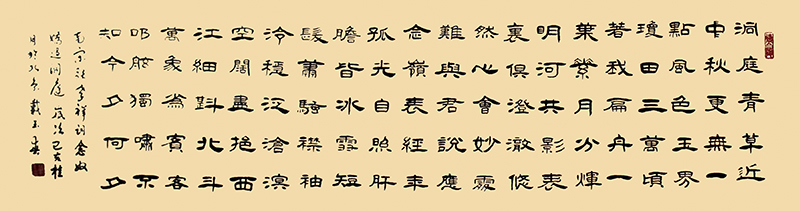 洞庭青草近
中秋更無一
點風色玉界
瓊田三萬頃
著我扁舟一
葉素月分輝
明河共影表
裏俱澄澈悠
然心會妙處
難與君說應
念嶺表經年
孤光自照肝
膽皆冰雪短
髮蕭騷襟袖
冷穩泛滄溟
空闊盡挹西
江細斟北斗
萬象為賓客
叩舷獨嘯不
知今夕何夕
南宋張孝祥詞念奴
嬌過洞庭歲次己亥桂
月於北京戴玉